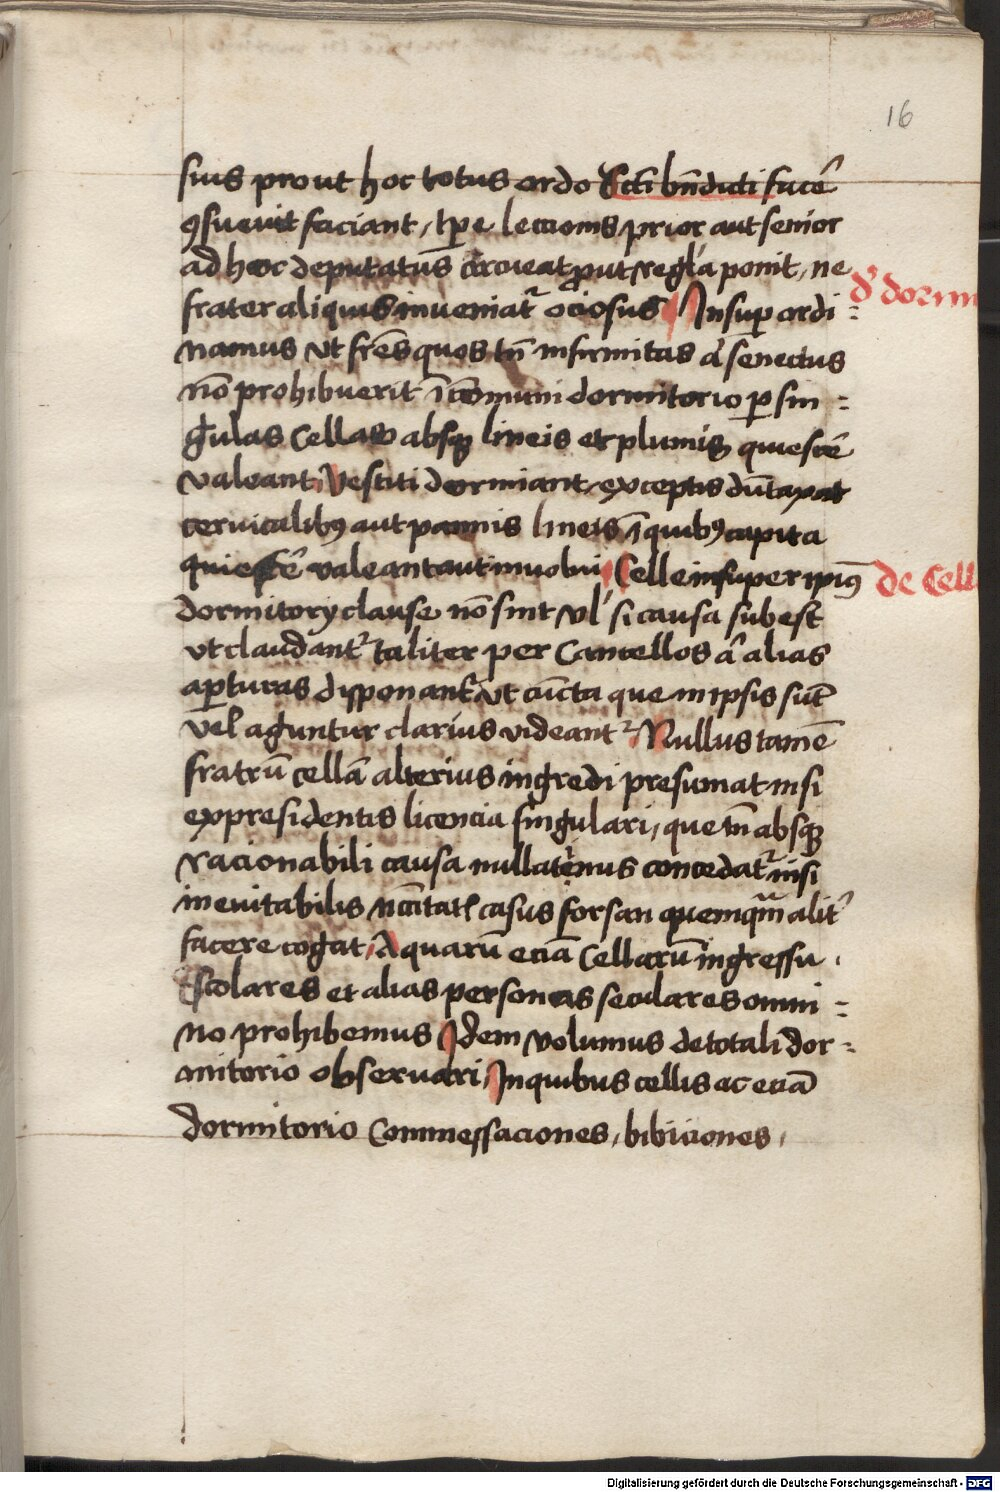 16
sius prout hoc totus ordo Scti bn̄dicti facē
ꝯsuevit faciant, tꝑe leccionis prior aut senior
ad hoc deputatus circueat ꝓut regl'a ponit, ne
d' dorm
frater aliquis inveniat᷑ ociosus Insuꝑ ordi=
namus vt frēs quos tn̄ infirmitas aū senectus
nō prohibuerit ī cōmuni dormitorio ꝑ sin=
gulas Cellas absqꝫ lineis et plumis quiescē
valeant, Vestiti dormiant exceptis dūtaxat
cervicalibꝰ aut pannis lineis ī quibꝰ capita
quiescē valeant aut involui Celle insuper ipiꝰ
de Cell
dormitory clause nō sint vl' si causa subest
vt claudant᷑ taliter per Cancellos aū alias
aꝑturas disponant᷑ vt cūcta que in ipsis sūt
vel aguntur clarius videant᷑ Nullus tamē
fratrū cellā alterius ingredi presumat nisi
ex presidentis licencia singulari, que tn̄ absqꝫ
racionabili causa nullatenus concedat᷑ nisi
inevitabilis ncc̄itatꝭ casus forsan quemqm̄ alit᷑
facere cogat, A quarū eciā Cellarū ingressu
Scolares et alias personas seculares omni=
no prohibemus Idem volumus de totali dor=
mitorio observari, In quibus cellis ac eciā
dormitorio Commessaciones, bibiciones,
Digitalisierung gefördert durch die Deutsche Forschungsgemeinschaft - DFG